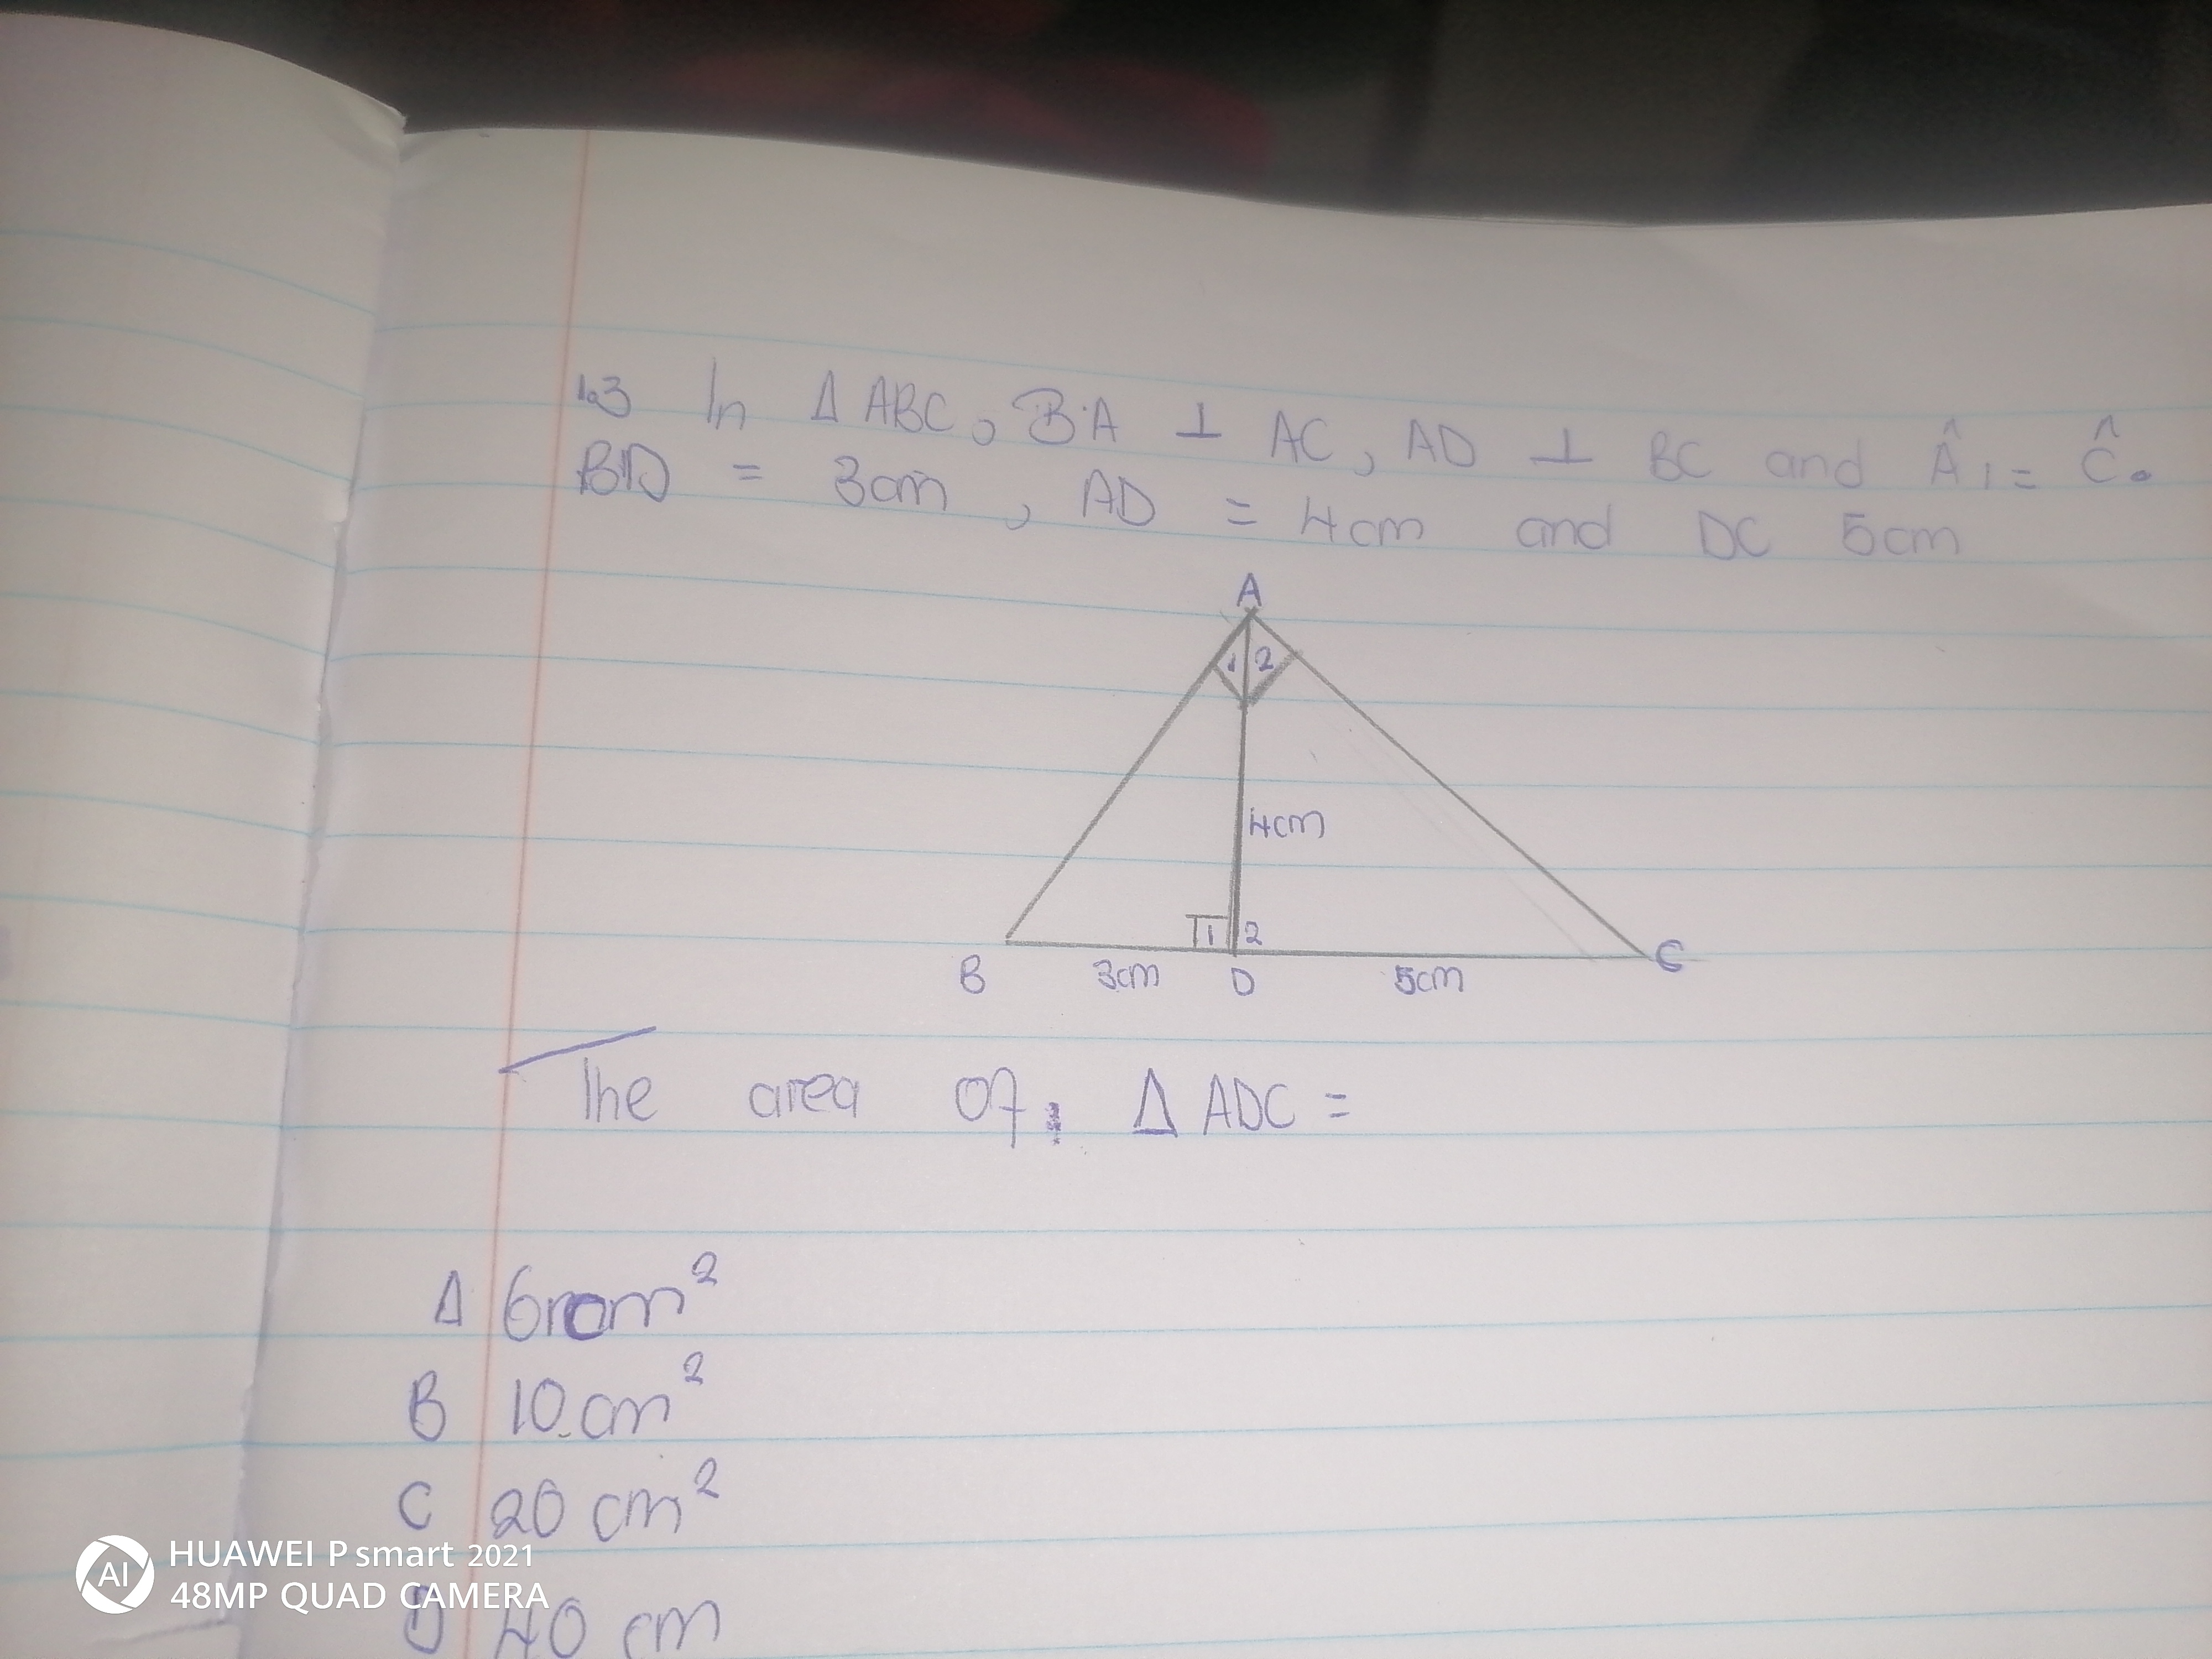 1.3 In Δ ABC, BA ⊥ AC, AD ⊥ BC and Â1 = Ĉ.
BD = 3cm, AD = 4cm and DC 5cm
A
1 2
4cm
1 2
B 3cm D 5cm C
The area of, Δ ADC =
A 6 cm²
B 10 cm²
C 20 cm²
D 40 cm
AI
HUAWEI P smart 2021
48MP QUAD CAMERA